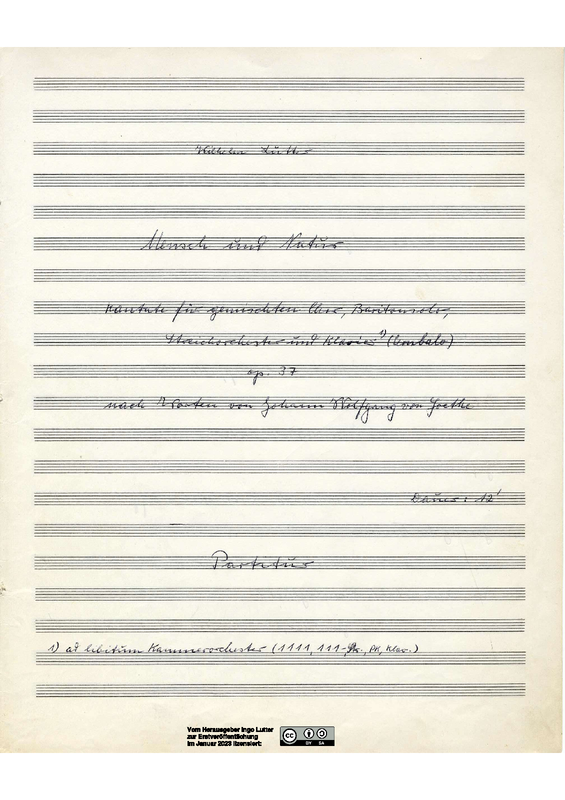 Wilhelm Lutter
Mensch und Natur
Kantate für gemischten Chor, Baritonsolo,
Streichorchester und Klavier 1) (Cembalo)
op. 37
nach Worten von Johann Wolfgang von Goethe
Dauer: 12'
Partitur
1) ad libitum Kammerorchester (1111, 111-, Pk, Klav.)
Vom Herausgeber Ingo Lutter
zur Erstveröffentlichung
im Januar 2023 lizensiert:
cc
BY SA